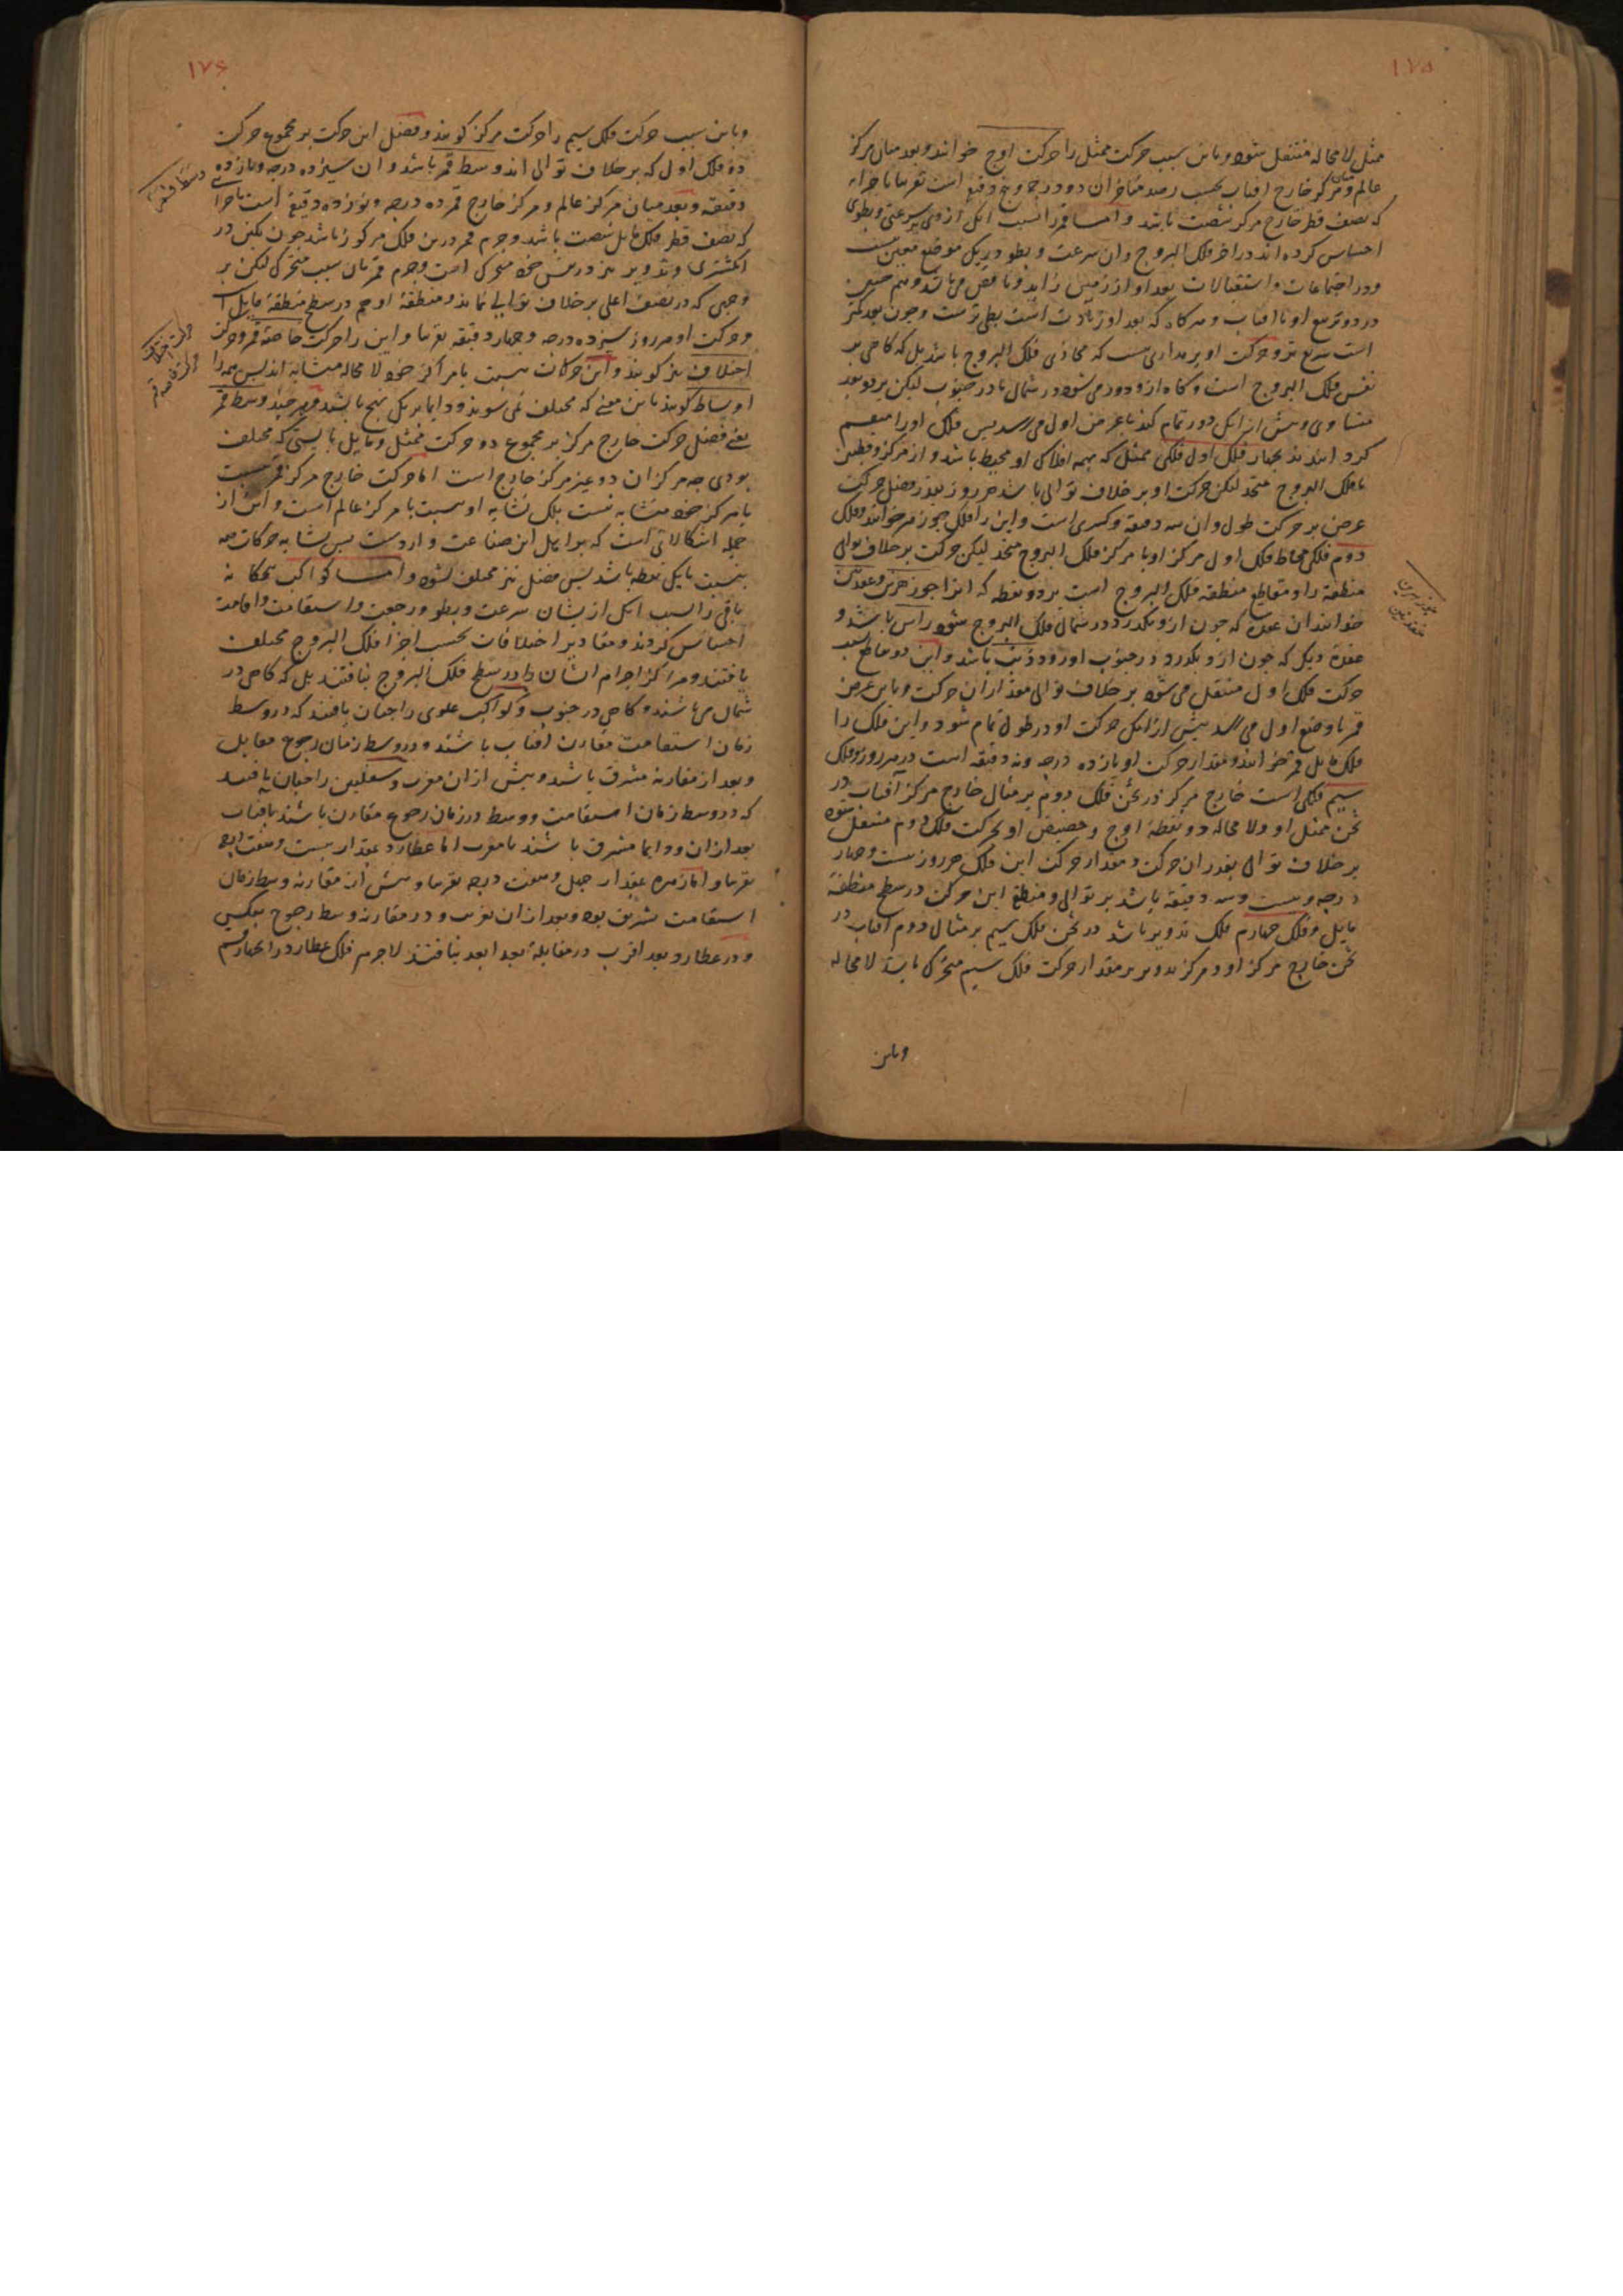 ۱۷۵
ممثل لا محاله منتقل شود و باین سبب حرکت ممثل را حرکت اوج خوانند و بعد میان مرکز
عالم و مرکز خارج افتاب بحسب رصد متاخران دو درجه و پنج دقیقه است تقریبا باجزاء
که نصف قطر خارج مرکز شصت باشد و اما قمر را بسبب انکه ازو سرعتی و بطوی
احساس کرده اند در اجزاء فلک البروج و ان سرعت و بطو در یک موضع معین نیست
و در اجتماعات و استقبالات بعد او از زمین زاید و ناقص می باشد و هم چنین
در دو تربیع او با افتاب و هرکاه که بعد او زیادت است بطی ترست و چون بعد کمتر
است سریع تر و حرکت او بر مداری نیست که محاذی فلک البروج باشد بل که کاهی بر
نفس فلک البروج است و کاه ازو دور می شود در شمال یا در جنوب لیکن بر دو بعد
متساوی و پیش از انکه دور تمام کند با عرض اول می رسد پس فلک او را منقسم
کرد انیدند بچهار فلک اول فلکی ممثل که بهمه افلاک او محیط باشد و از مرکز و قطبین
با فلک البروج متحد لیکن حرکت او بر خلاف توالی باشد هر روز بقدر فضل حرکت
عرض بر حرکت طول و ان سه دقیقه و کسری است و این را فلک جوزهر خوانند و فلک
دوم فلکی محاط فلک اول مرکز او با مرکز فلک البروج متحد لیکن حرکت بر خلاف توالی
منطقه او مقاطع منطقه فلک البروج است بر دو نقطه که انرا جوزهرین و عقدتین
خوانند ان عقده که چون ازو بکذرد در شمال فلک البروج شود راس باشد و
عقده دیکر که چون ازو بکذرد در جنوب اورود ذنب باشد و این دو تقاطع بسبب
حرکت فلک اول منتقل می شود بر خلاف توالی مقدار ان حرکت و باین عرض
قمر با وضع اول می رسد پیش از انکه حرکت او در طول تمام شود و این فلک را
فلک مایل قمر خوانند و مقدار حرکت او یازده درجه و نه دقیقه است در هر روز و فلک
سیم فلکی است خارج مرکز در ثخن فلک دوم بر مثال خارج مرکز آفتاب در
ثخن ممثل او و لا محاله دو نقطه اوج و حضیض او بحرکت فلک دوم منتقل شود
بر خلاف توالی بقدر ان حرکت و مقدار حرکت این فلک هر روز بیست و چهار
درجه و بیست و سه دقیقه باشد بر توالی و منطقه این حرکت در سطح منطقه
مایل و فلک چهارم فلک تدویر باشد در ثخن فلک سیم بر مثال دوم آفتاب در
ثخن خارج مرکز او و مرکز تدویر بر مقدار حرکت فلک سیم متحرک باشد لا محاله
و باین
جوزهرین
عقدتین
۱۷۶
و باین سبب حرکت فلک سیم را حرکت مرکز کویند و فضل این حرکت بر مجموع حرکت
دو فلک اول که بر خلاف توالی اند وسط قمر باشد و ان سیزده درجه و یازده
دقیقه و بعد میان مرکز عالم و مرکز خارج قمر ده درجه و نوزده دقیقه است باجزائی
که نصف قطر فلک مایل شصت باشد و جرم قمر درین فلک مرکوز باشد چون نکین در
انکشتری و تدویر نیز در نفس خود متحرک است و جرم قمر بان سبب متحرک لیکن بر
وجهی که در نصف اعلی بر خلاف توالی نماید و منطقه او هم در سطح منطقه مایل است
و حرکت او هر روز سیزده درجه و چهار دقیقه تقریبا و این را حرکت خاصه قمر و حرکت
اختلاف نیز کویند و این حرکات نسبت با مراکز خود لا محاله متشابه اند پس همه را
اوساط کویند باین معنی که مختلف نمی شوند و دایما بر یک نهج باشد و هر چند وسط قمر
یعنی فضل حرکت خارج مرکز بر مجموع دو حرکت ممثل و مایل بایستی که مختلف
بودی چه مرکز ان دو غیر مرکز خارج است اما حرکت خارج مرکز قمر نسبت
با مرکز خود متشابه نیست بلک تشابه او نسبت با مرکز عالم است و این از
جمله اشکالاتی است که بر اهل این صناعت واردست پس تشابه حرکات همه
بنسبت با یک نقطه باشد پس فضل نیز مختلف نشود و اما کواکب پنجکانه
باقی را بسبب انکه ازیشان سرعت و بطو و رجعت و استقامت و اقامت
احساس کردند و مقادیر اختلافات بحسب اجزا فلک البروج مختلف
یافتند و مراکز اجرام ایشان را در سطح فلک البروج نیافتند بل که کاهی در
شمال می باشند و کاهی در جنوب و کواکب علوی را چنان یافتند که در وسط
زمان استقامت مقارن افتاب باشند و در وسط زمان رجوع مقابل
و بعد از مقارنه مشرقی باشد و پیش از ان مغربی و سفلیین را چنان یافتند
که در وسط زمان استقامت و وسط زمان رجوع مقارن باشند با افتاب
بعد از ان و دایما مشرقی باشند یا مغربی اما عطارد بمقدار بیست و هفت درجه
تقریبا و اما زهره بمقدار چهل و هفت درجه تقریبا و پیش از مقارنه وسط زمان
استقامت شرقی بود و بعد از ان غربی و در مقارنه وسط رجوع بعکس
و در عطارد بعد اقرب در مقابله بعد ابعد نیافتند لا جرم فلک عطارد را بچهار قسم
وسط قمر
حرکت اختلاف
حرکت خاصه قمر